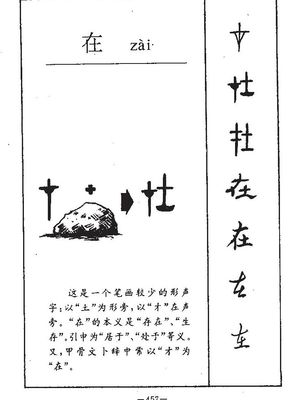 在 zài
这是一个笔画较少的形声
字；以“土”为形旁，以“才”在声
旁。“在”的本义是“存在”、“生
存”。引申为“居于”、“处于”等义。
又，甲骨文卜辞中常以“才”为
“在”。
—457—